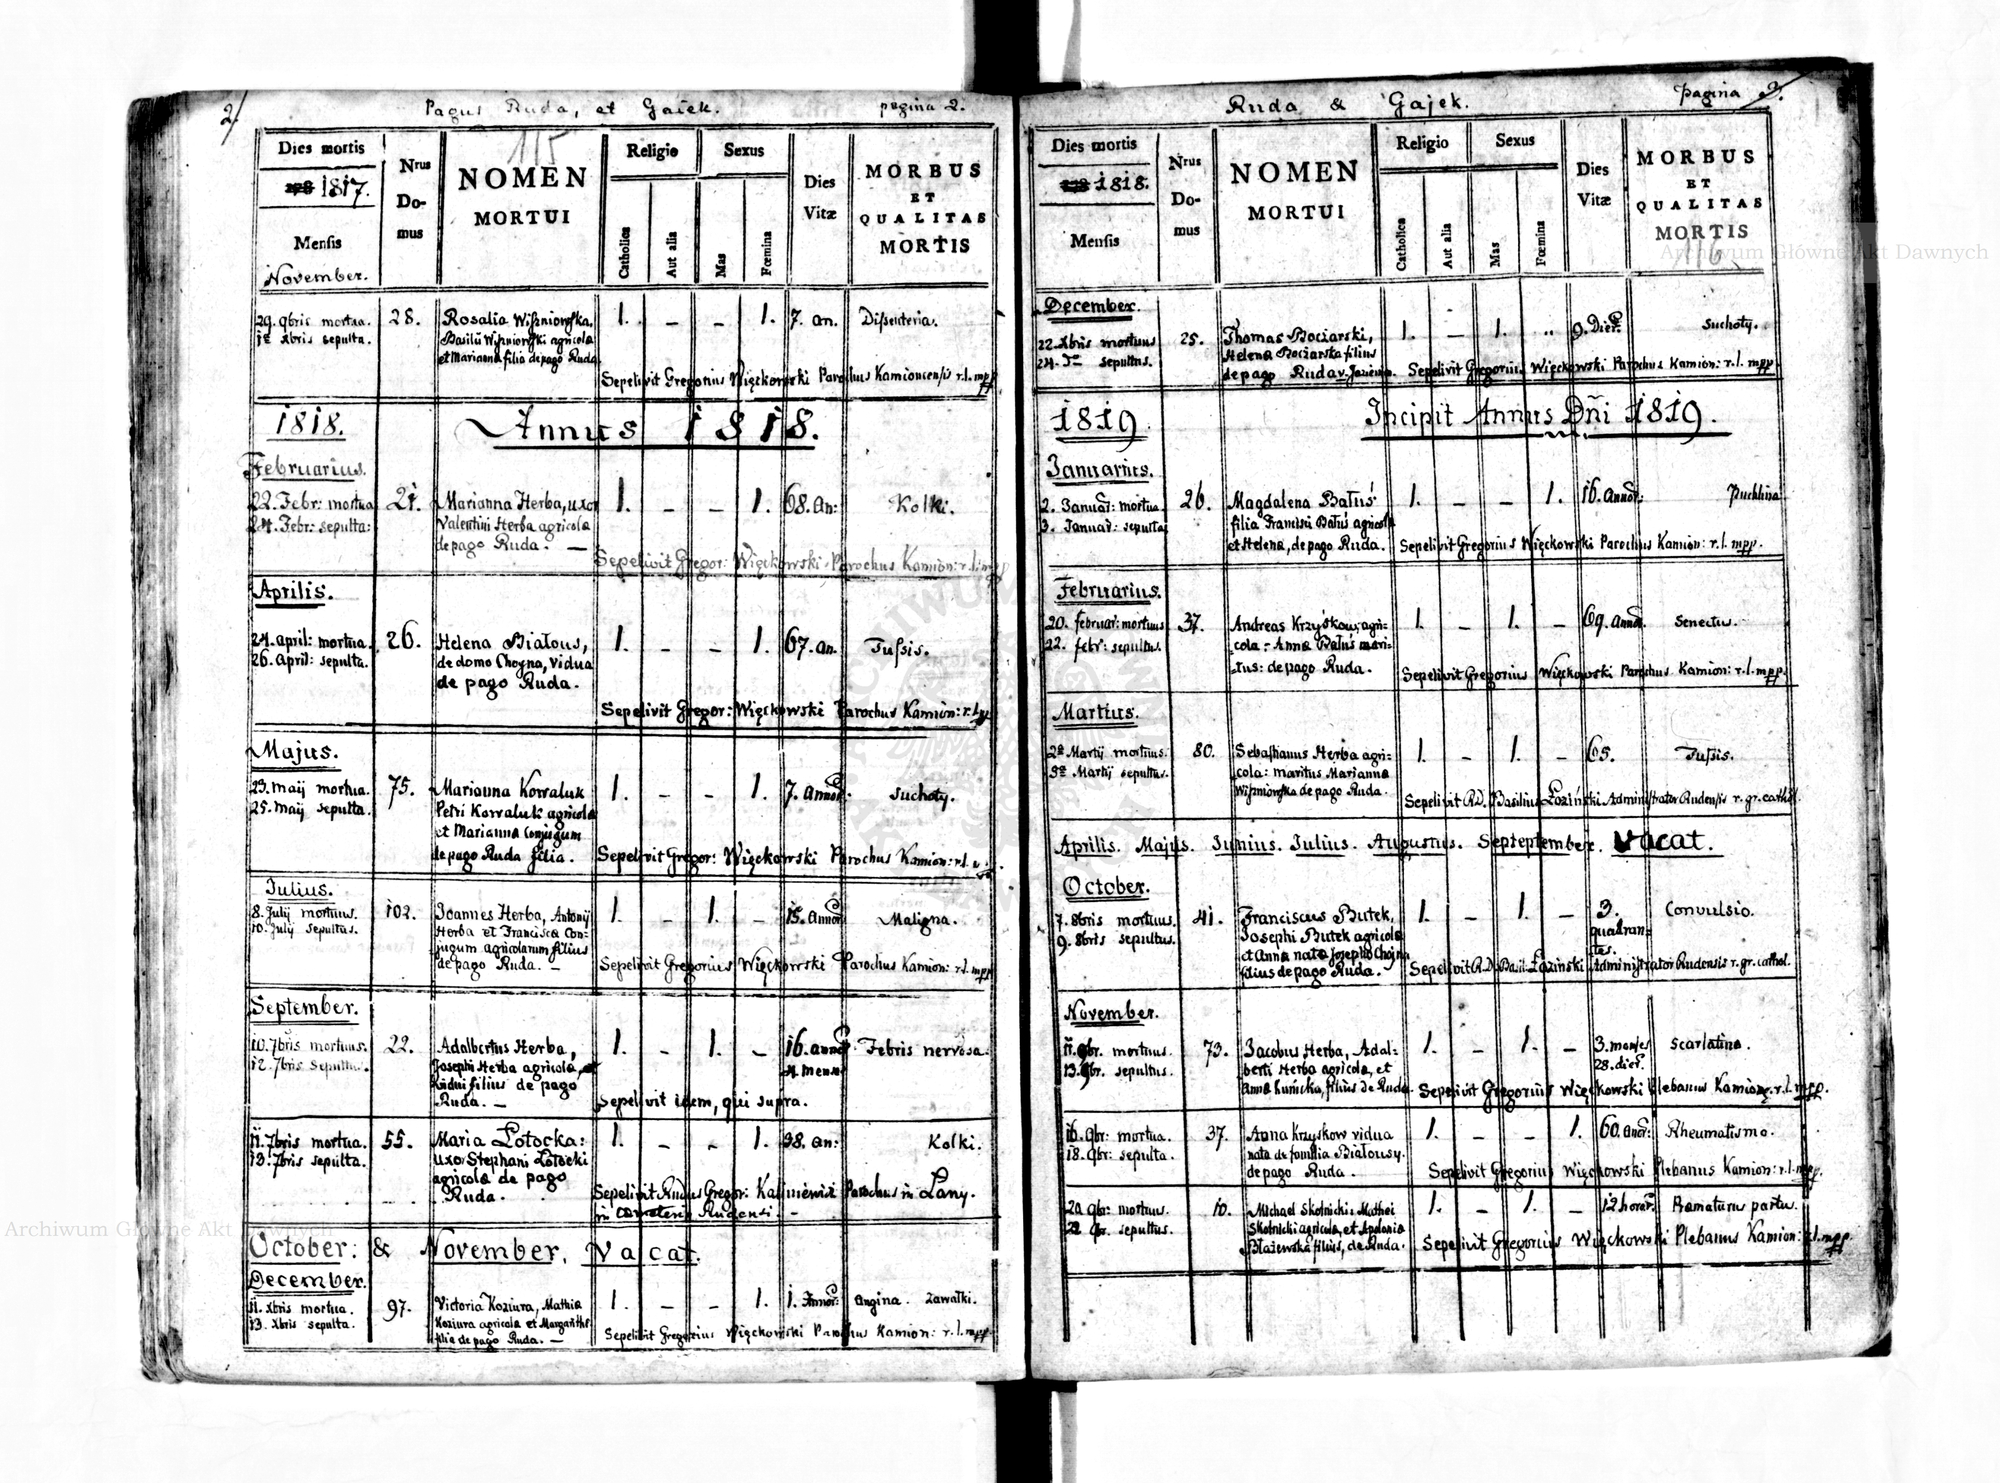 2/
Pagus Ruda, et Gaiek.
pagina 2.
115
Dies mortis
1817.
Mensis
November.
Nrus
Do-
mus
NOMEN
MORTUI
Religio
Catholica
Aut alia
Sexus
Mas
Fœmina
Dies
Vitæ
MORBUS
ET
QUALITAS
MORTIS
29. 9bris mortua. 28. Rosalia Wiszniowska, 1. - - 1. 7. an. Dissenteria.
1a Xbris sepulta. Basilii Wiszniowski agricolæ
et Marianna filia de pago Ruda.
Sepelivit Gregorius Więckowski Parochus Kamioncensis r. l. mpp
1818. Annus 1818.
Februarius.
22. Febr: mortua 21. Marianna Herba, uxor 1. - - 1. 68. An: Kolki.
24. Febr: sepulta: Valentini Herba agricolæ
de pago Ruda. —
Sepelivit Gregor: Więckowski Parochus Kamion: r. l. mpp
Aprilis.
24. april: mortua. 26. Helena Białous, 1. - - 1. 67. An. Tussis.
26. April: sepulta. de domo Choyna, vidua
de pago Ruda.
Sepelivit Gregor: Więckowski Parochus Kamion: r. l. mpp
Majus.
23. Maij mortua. 75. Marianna Kowaluk 1. - - 1. 7. Annor: Suchoty.
25. Maij sepulta. Petri Kowaluk agricolæ
et Marianna Conjugum
de pago Ruda filia.
Sepelivit Gregor: Więckowski Parochus Kamion: r. l.
Julius.
8. Julij mortuus. 102. Joannes Herba, Antonij 1. - 1. - 15. Annor Maligna.
10. Julij sepultus. Herba et Francisca Con-
jugum agricolarum filius
de pago Ruda. —
Sepelivit Gregorius Więckowski Parochus Kamion: r. l. mpp
September.
10. 7bris mortuus. 22. Adalbertus Herba, 1. - 1. - 16. annor Febris nervosa.
12. 7bris sepultus. Josephi Herba agricolæ, et
filius de pago
Ruda. —
4 mens
Sepelivit idem, qui supra.
11. 7bris mortua. 55. Maria Łotocka: 1. - - 1. 38. an: Kolki.
13. 7bris sepulta. uxor Stephani Łotocki
agricolæ de pago
Ruda.
Sepelivit Gregor: Parochus in Łany.
in Rudensi
October: & November, vacat.
December.
11. Xbris mortua. 97. Victoria Koziura, Mathiæ 1. - - 1. 1. Annor: Angina. Zawałki.
13. Xbris sepulta. Koziura agricolæ et Margarithæ
filia de pago Ruda. —
Sepelivit Gregorius Więckowski Parochus Kamion: r. l. mpp
Ruda & Gajek.
pagina 3.
116
Dies mortis
1818.
Mensis
Nrus
Do-
mus
NOMEN
MORTUI
Religio
Catholica
Aut alia
Sexus
Mas
Fœmina
Dies
Vitæ
MORBUS
ET
QUALITAS
MORTIS
December.
22. Xbris mortuus 25. Thomas Bociarski, 1. - 1. 9. Dier. Suchoty.
24. sepultus. Helena Bociarska filius
de pago Ruda
Sepelivit Gregorius Więckowski Parochus Kamion: r. l. mpp.
1819 Incipit Annus Dñi 1819.
Januarius.
2. Januar: mortua 26. Magdalena Bałuś 1. - - 1. 16. Annor: Puchlina
3. Januar: sepulta filia Francisci Bałuś agricolæ
et Helena, de pago Ruda.
Sepelivit Gregorius Więckowski Parochus Kamion: r. l. mpp.
Februarius.
20. februar: mortuus 37. Andreas Krzyśkow, agri- 1. - 1. - 69. Annor. Senectus.
22. febr: sepultus. cola - Anna Bałuś mari-
tus: de pago Ruda.
Sepelivit Gregorius Więckowski Parochus Kamion: r. l. mpp.
Martius.
2a Martij mortuus. 80. Sebasthanus Herba agri- 1. - 1. - 65. Tussis.
3a Martij sepultus. cola: maritus Marianna
Wiszniowska de pago Ruda.
Sepelivit R.D. Basilius Łoziński Administrator Rudensis r. gr. cathol.
Aprilis. Majus. Junius. Julius. Augustus. Septeptember. vacat.
October.
7. 8bris mortuus. 41. Franciscus Butek, 1. - 1. - 3. Convulsio.
9. 8bris sepultus. Josephi Butek agricolæ quadran-
et Anna nata Josepho Chojna tes.
filius de pago Ruda.
Sepelivit R.D. Basil: Łoziński Administrator Rudensis r. gr. cathol.
November.
11. 9br. mortuus. 73. Jacobus Herba, Adal- 1. - 1. - 3. menses Scarlatina.
13. 9br. sepultus. berti Herba agricolæ, et 28. dier.
Anna filius de Ruda
Sepelivit Gregorius Więckowski Plebanus Kamion: r. l. mpp.
16. 9br: mortua. 37. Anna Krzyskow vidua 1. - - 1. 60. anor: Rheumatismo.
18. 9br: sepulta. nata de familia Białousy.
de pago Ruda.
Sepelivit Gregorius Więckowski Plebanus Kamion: r. l. mpp.
20 9br: mortuus. 10. Michael Skotnicki: Mathei 1. - 1. - 12 horar. Præmaturus partu.
22 9br. sepultus. Skotnicki agricolæ, et Apolonia
Błażewska filius, de Ruda.
Sepelivit Gregorius Więckowski Plebanus Kamion: r. l. mpp.
Archiwum Główne Akt Dawnych
Archiwum Główne Akt Dawnych